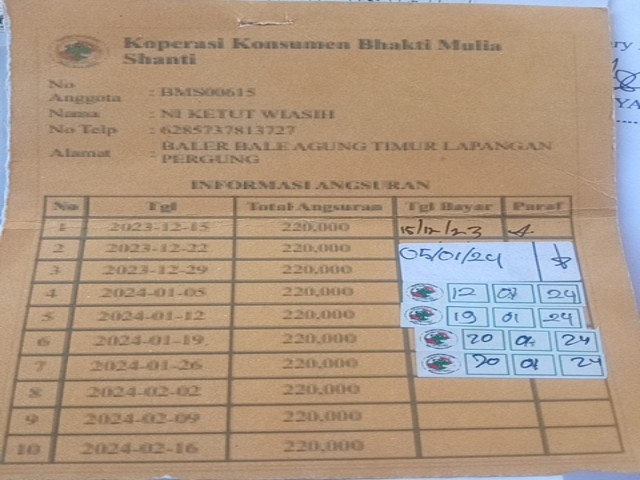 Koperasi Konsumen Bhakti Mulia
Shanti
No
Anggota : BMS00615
Nama : NI KETUT WIASIH
No Telp : 6285737813727
Alamat : BALER BALE AGUNG TIMUR LAPANGAN
PERGUNG
INFORMASI ANGSURAN
No Tgl Total Angsuran Tgl Bayar Paraf
1 2023-12-15 220,000 15/12/23
2 2023-12-22 220,000 05/01/24
3 2023-12-29 220,000
4 2024-01-05 220,000 12 01 24
5 2024-01-12 220,000 19 01 24
6 2024-01-19 220,000 20 01 24
7 2024-01-26 220,000 20 01 24
8 2024-02-02 220,000
9 2024-02-09 220,000
10 2024-02-16 220,000